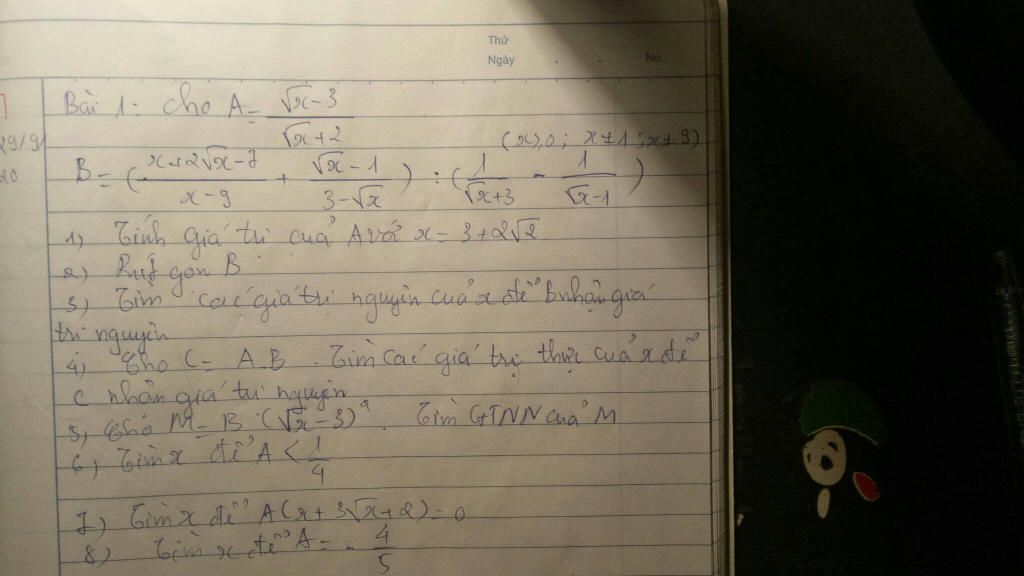 Thứ
Ngày
No.
29/9/
20
Bài 1: Cho A = (√x - 3)/(√x + 2)
(x ≥ 0; x ≠ 1; x ≠ 9)
B = ((x + 2√x - 7)/(x - 9) + (√x - 1)/(3 - √x)) : (1/(√x + 3) - 1/(√x - 1))
1) Tính giá trị của A với x = 3 + 2√2
2) Rút gọn B
3) Tìm các giá trị nguyên của x để B nhận giá
trị nguyên
4) Cho C = A.B. Tìm các giá trị thực của x để
C nhận giá trị nguyên
5) Cho M = B:(√x - 3)². Tìm GTNN của M
6) Tìm x để A < 1/4
7) Tìm x để A(x + 3√x + 2) = 0
8) Tìm x để A = -4/5